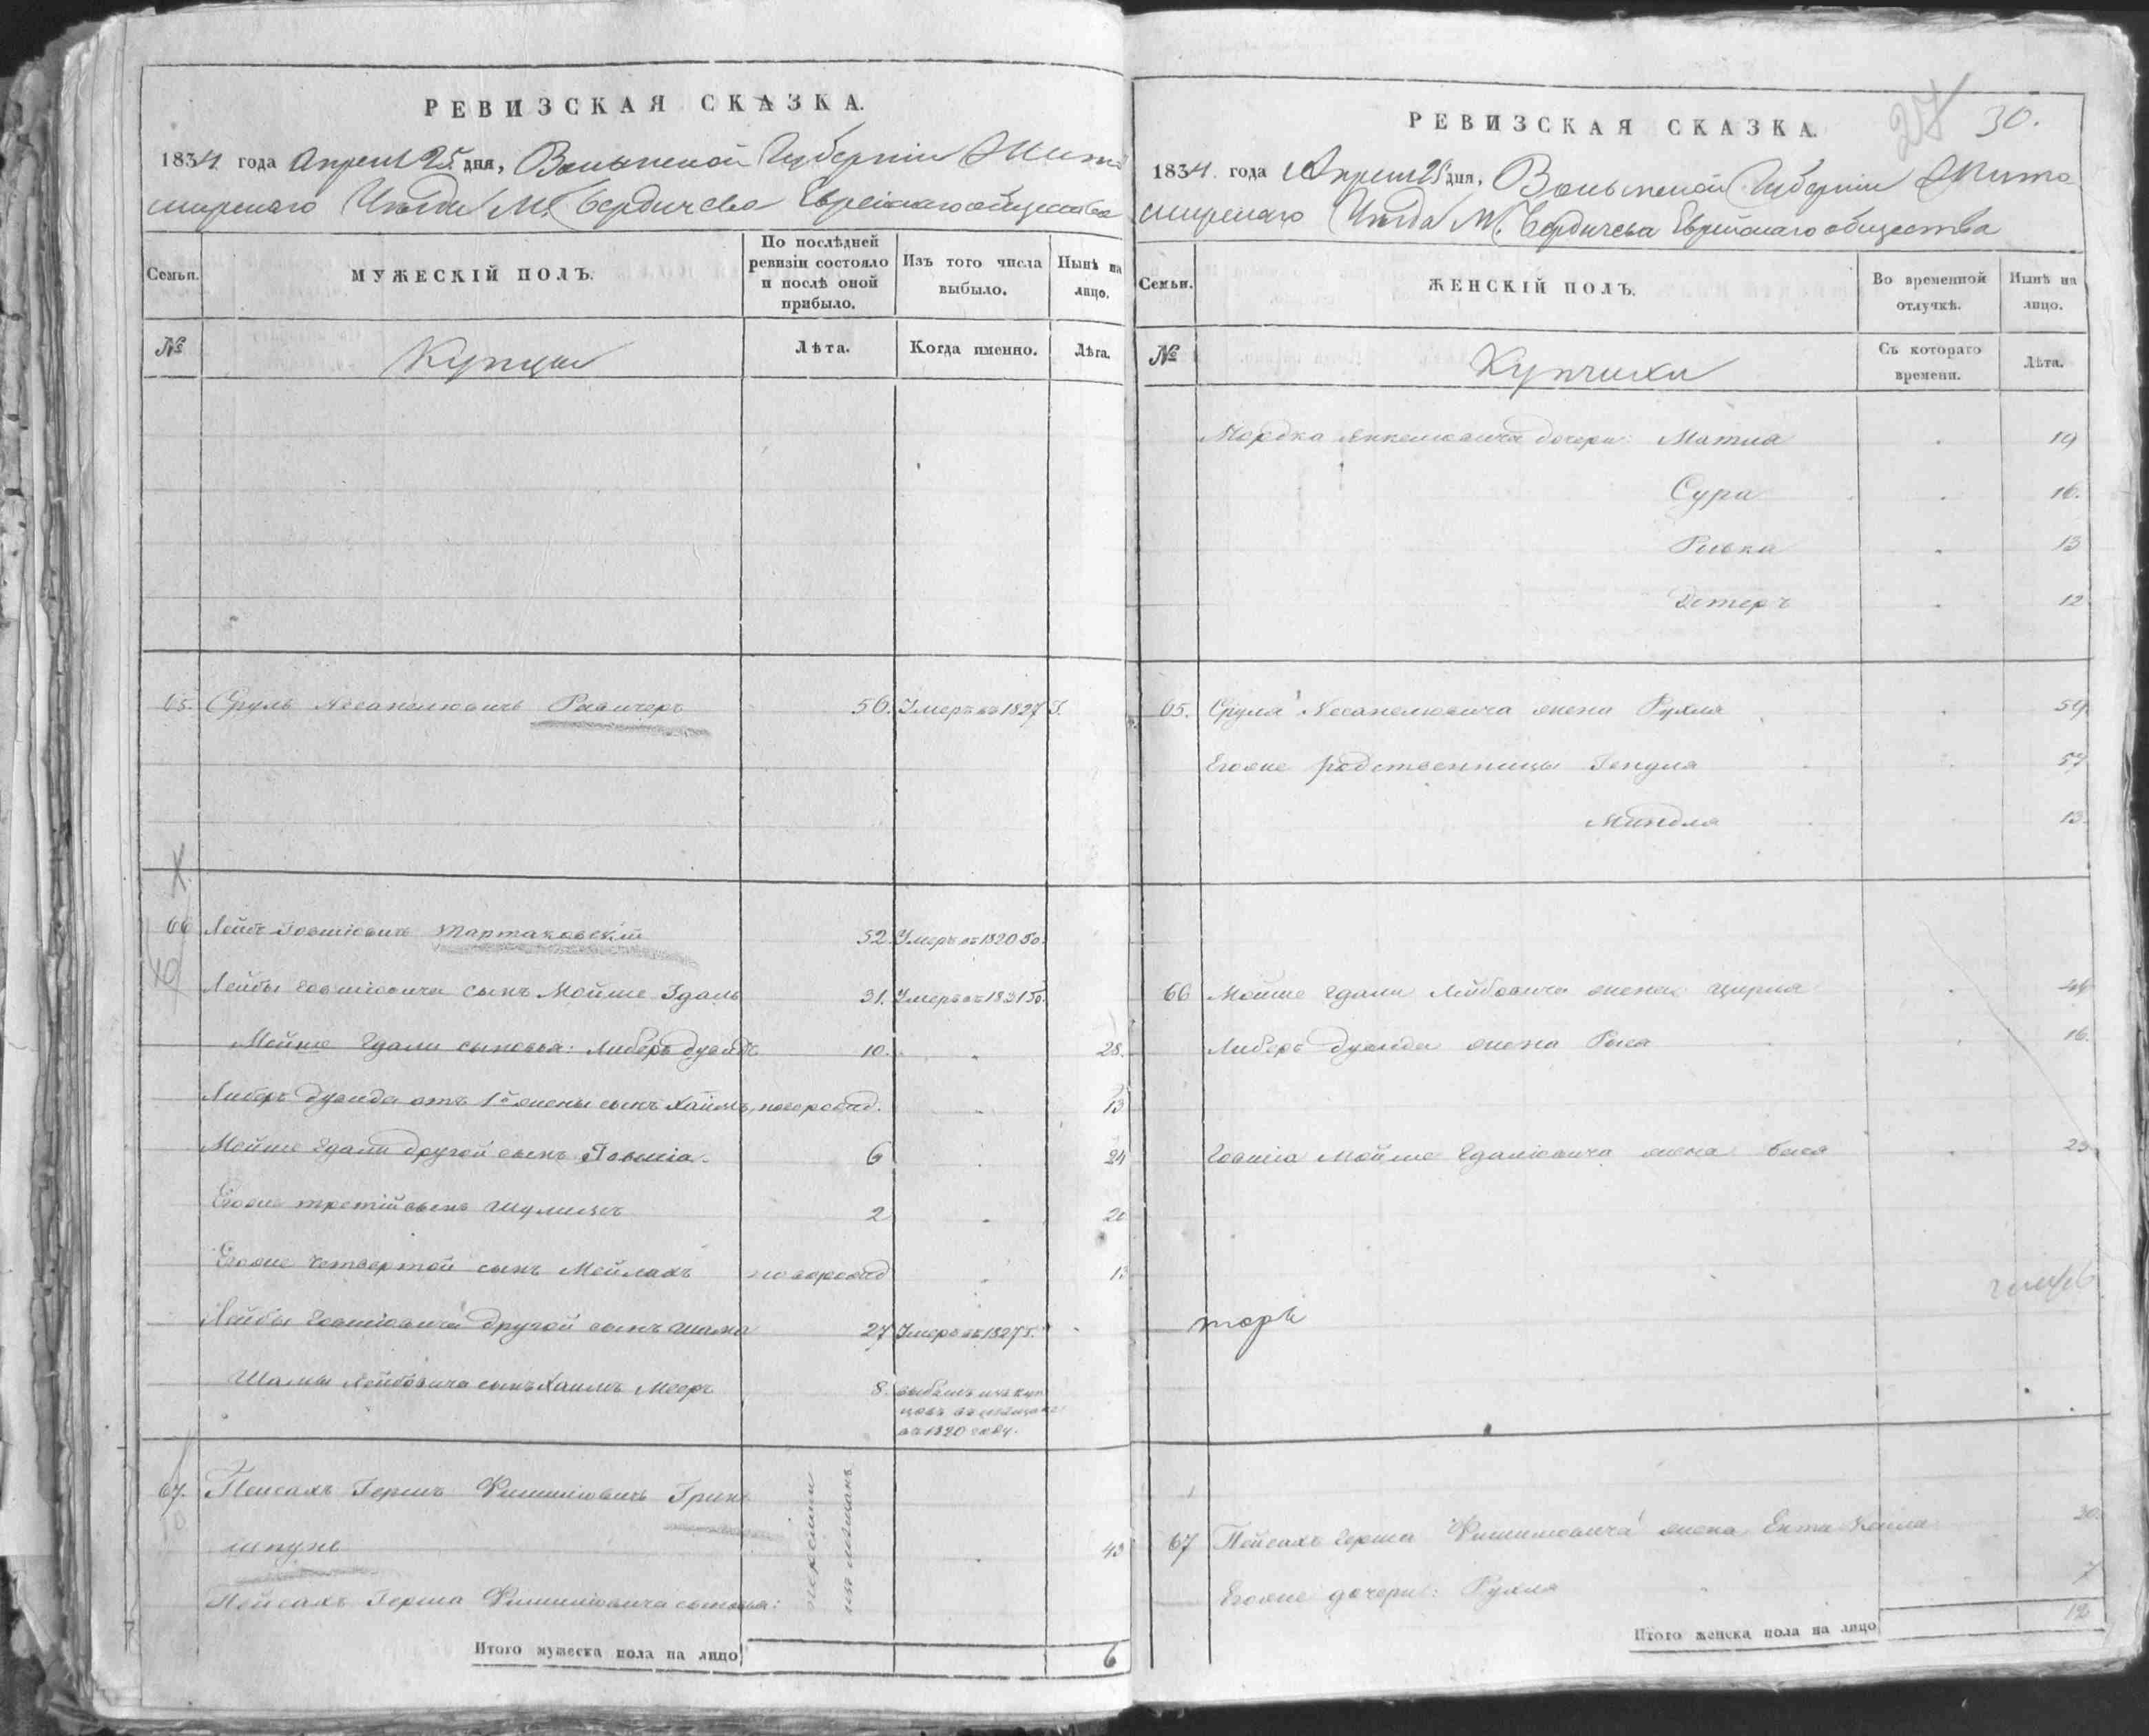 РЕВИЗСКАЯ СКАЗКА.
1834 года Апреля 25 дня, Волынской Губерніи Жито
мирскаго Уѣзда М. Бердичева Еврейскаго общества
Семьи.
МУЖЕСКІЙ ПОЛЪ.
По послѣдней ревизіи состояло и послѣ оной прибыло.
Изъ того числа выбыло.
Нынѣ на лицо.
№
Купцы
Лѣта.
Когда именно.
Лѣта.
65. Сруль Росичеръ 56. Умеръ въ 1827 Г.
66 Лейбъ Іовшіовичъ Тартаковскій 52 Умеръ въ 1820 го.
Лейбы Іовшіовича сынъ Мойше Гдаль 31. Умеръ въ 1831 го.
Мойше Гдали сыновья: Либеръ Дувидъ 10. 28.
Либеръ Дувида отъ 1й жены сынъ Хаимъ новорожд. 13
Мойше Гдали другой сынъ Іовшіа 6 24
Егоже третій сынъ Шулимъ 2 20
Егоже четвертой сынъ Мейлахъ новорожд 13
Лейбы Іовшіовича другой сынъ Шама 27 Умеръ въ 1827 г.
Шамы Лейбовича сынъ Хаимъ Мееръ 8. выбылъ изъ куп
цовъ въ мещане
въ 1820 году.
67. Пейсахъ Гершъ Фишиліовичъ Грин
шпунъ 43
перешли
изъ мещанъ
Пейсахъ Герша Фишиліовича сыновья:
Итого мужеска пола на лицо 6
27
30.
РЕВИЗСКАЯ СКАЗКА.
1834 года Апреля 25 дня, Волынской Губерніи Жито
мирскаго Уѣзда М. Бердичева Еврейскаго общества
Семьи.
ЖЕНСКІЙ ПОЛЪ.
Во временной отлучкѣ.
Нынѣ на лицо.
№
Купчихи
Съ котораго времени.
Лѣта.
Мордка Янкелiовича дочери: Матля 19
Сура 16.
Ривка 13
Естеръ 12
65. Сруля жена Рухля 59
Егоже родственницы Гендля 57
Миндля 13.
66 Мойше Гдали Лейбовича жена Цирля 44
Либеръ Дувида жена Рыся 16.
Іовшіа Мойше Гдаліовича жена Бася 23
торъ
67 Пейсахъ Герша Фишиліовича жена Ента Хайла 30
Егоже дочери: Рухля 7
Итого женска пола на лицо 12